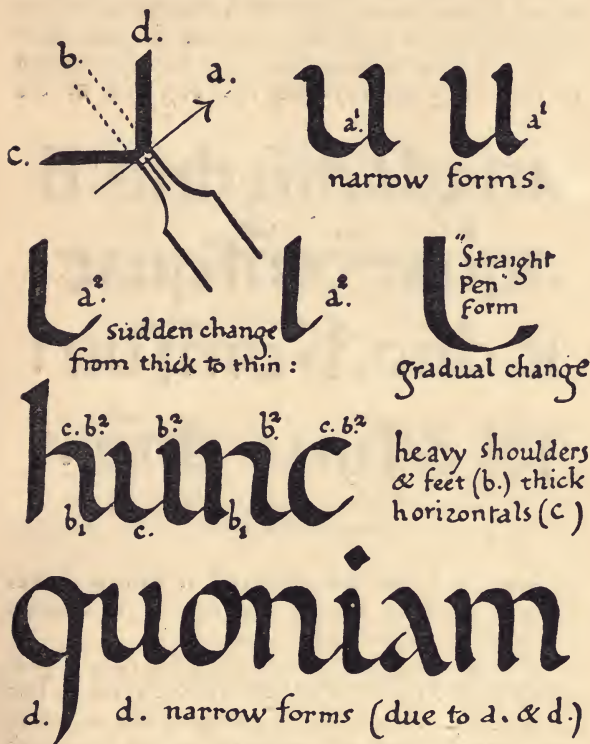 d.
b.
a.
c.
u u
a¹. a¹
narrow forms.
l l
a². a².
sudden change
from thick to thin :
"Straight
Pen"
form
gradual change
c. b.² b.² b.² c. b.²
hunc
b₁ c. b₁
heavy shoulders
& feet (b.) thick
horizontals (c)
quoniam
d. d. narrow forms (due to a. & d.)